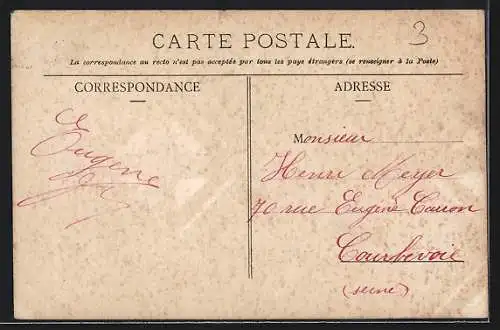 3
CARTE POSTALE.
La correspondance au recto n'est pas acceptée par tous les pays étrangers (se renseigner à la Poste)
CORRESPONDANCE
ADRESSE
Eugène
Monsieur
Henri Meyer
70 rue Eugène Caron
Courbevoie
(seine)